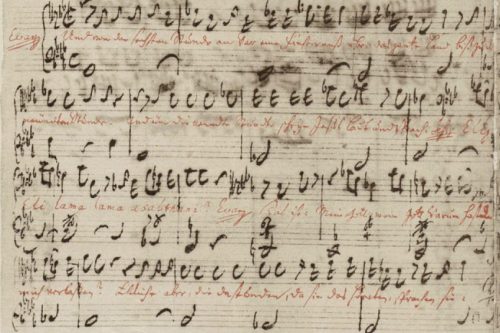 Evang Und von der sechsten Stunde an war eine Finsterniß über das gantze Land biß zu
neundten Stunde. Und um die neundte Stunde schrye Jesus laut und sprach: E
lama lama asabthani? Evang Das ist: Mein Gott, mein Gott warum
mich verlaßen? Etliche aber, die da stunden, da sie das höreten, sprachen sie: